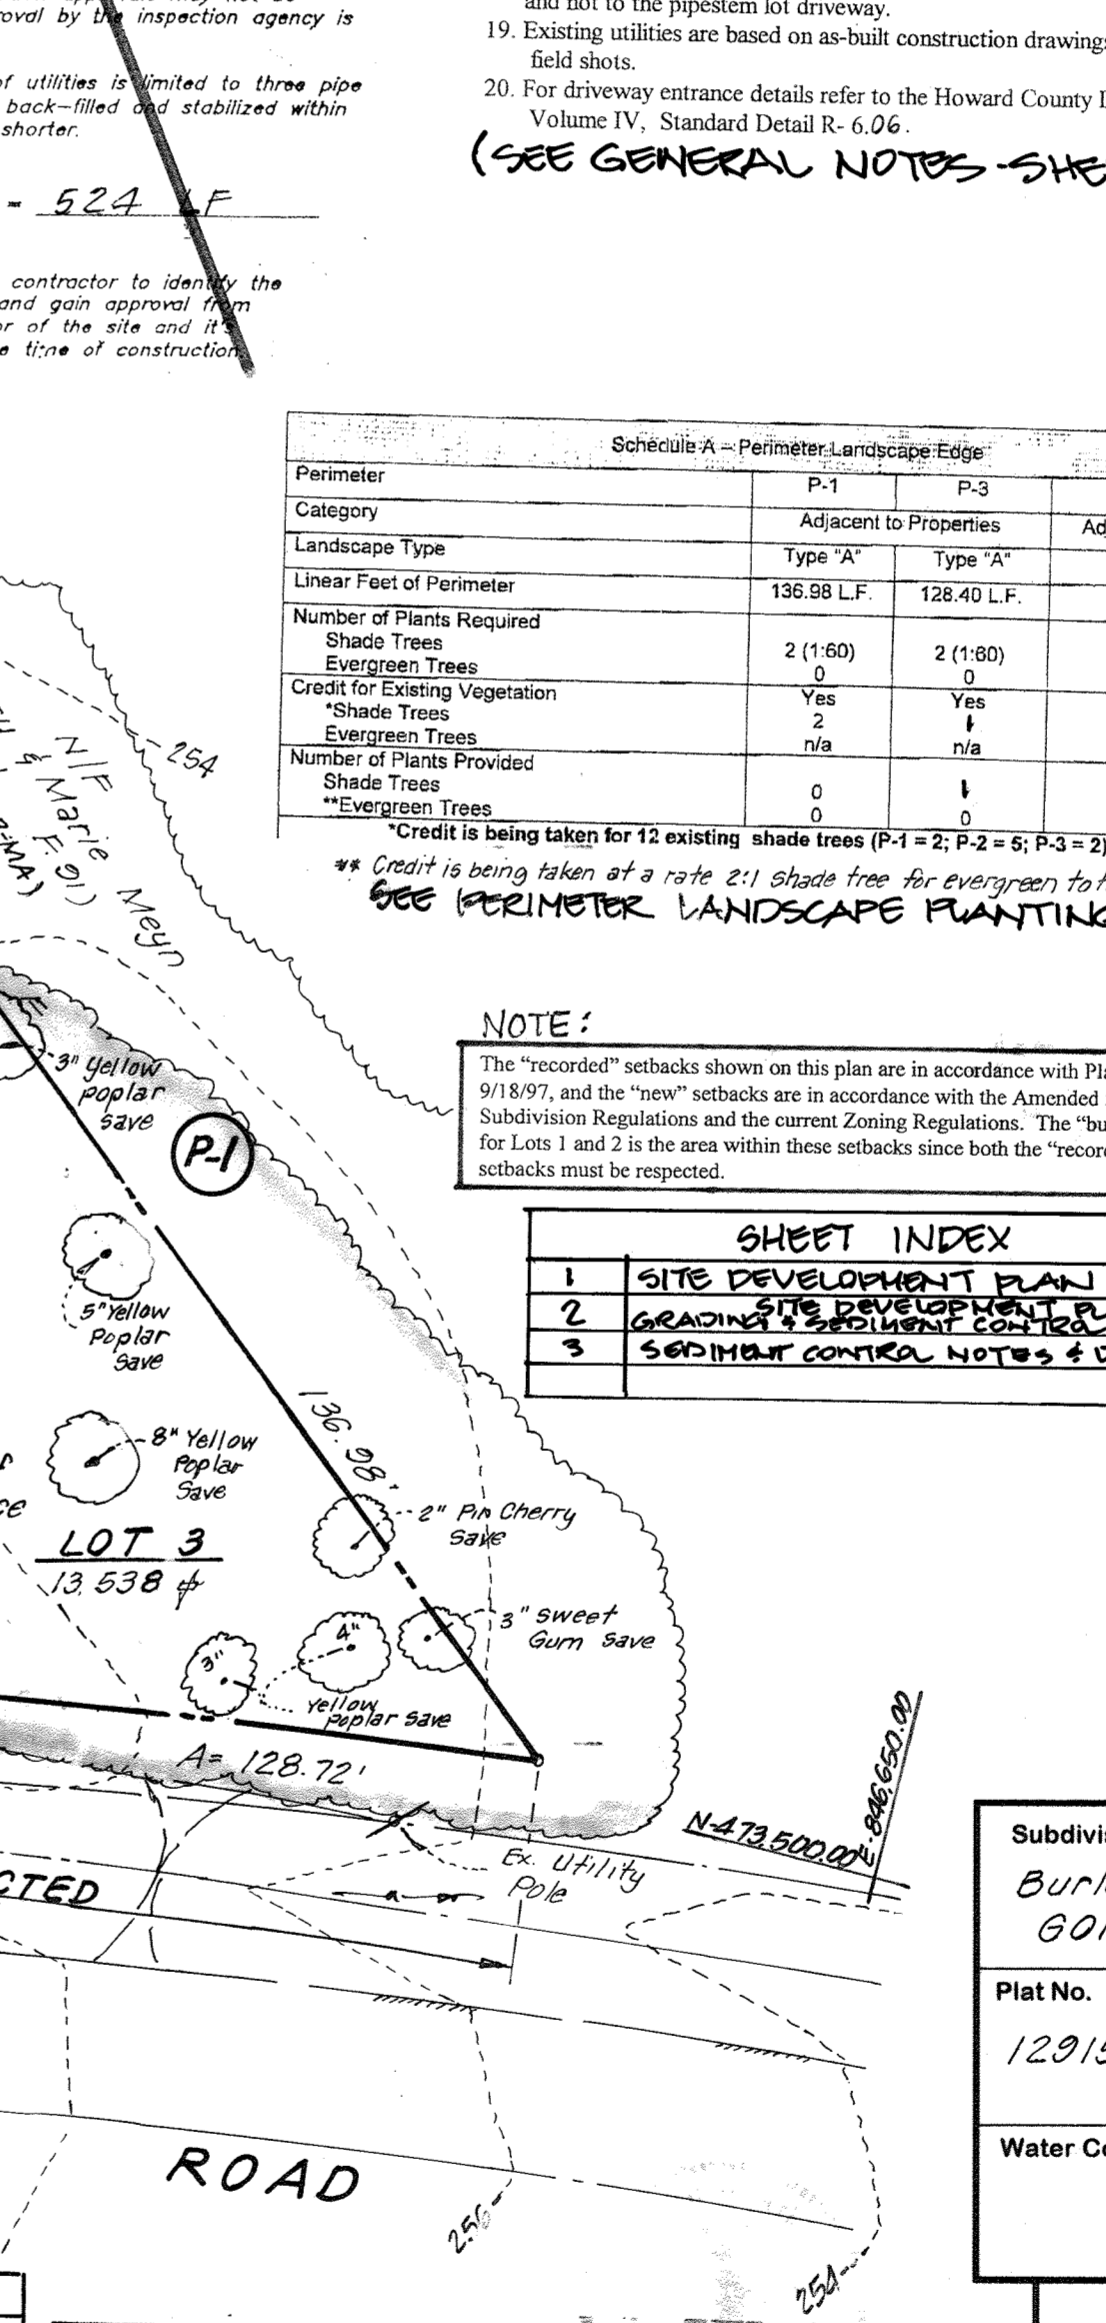 roval by the inspection agency is
of utilities is limited to three pipe
back-filled and stabilized within
shorter.
- 524 LF
contractor to identify the
and gain approval from
or of the site and it's
time of construction
and not to the pipestem lot driveway.
19. Existing utilities are based on as-built construction drawings
field shots.
20. For driveway entrance details refer to the Howard County
Volume IV, Standard Detail R- 6.06.
(SEE GENERAL NOTES - SHE
Schedule A - Perimeter Landscape Edge
Perimeter P-1 P-3
Category Adjacent to Properties Ad
Landscape Type Type "A" Type "A"
Linear Feet of Perimeter 136.98 L.F. 128.40 L.F.
Number of Plants Required
Shade Trees 2 (1:60) 2 (1:60)
Evergreen Trees 0 0
Credit for Existing Vegetation Yes Yes
*Shade Trees 2 1
Evergreen Trees n/a n/a
Number of Plants Provided
Shade Trees 0 1
**Evergreen Trees 0 0
*Credit is being taken for 12 existing shade trees (P-1 = 2; P-2 = 5; P-3 = 2)
** Credit is being taken at a rate 2:1 shade tree for evergreen to
SEE PERIMETER LANDSCAPE PLANTING
254
N/F
& Marie Meyn
F. 91)
NOTE:
The "recorded" setbacks shown on this plan are in accordance with Pla
9/18/97, and the "new" setbacks are in accordance with the Amended
Subdivision Regulations and the current Zoning Regulations. The "bu
for Lots 1 and 2 is the area within these setbacks since both the "recor
setbacks must be respected.
SHEET INDEX
1 SITE DEVELOPMENT PLAN
2 SITE DEVELOPMENT PL
GRADING & SEDIMENT CONTROL
3 SEDIMENT CONTROL NOTES &
3" Yellow
Poplar
save
P-1
5" Yellow
Poplar
Save
136.98'
8" Yellow
Poplar
Save
2" Pin Cherry
Save
LOT 3
13,538
3" Sweet
Gum Save
4"
3"
Yellow
Poplar Save
A= 128.72'
N-473,500.00
E-846,650.00
Ex. Utility
Pole
CTED
ROAD
256
254
Subdivis
Burl
GO
Plat No.
12915
Water Co